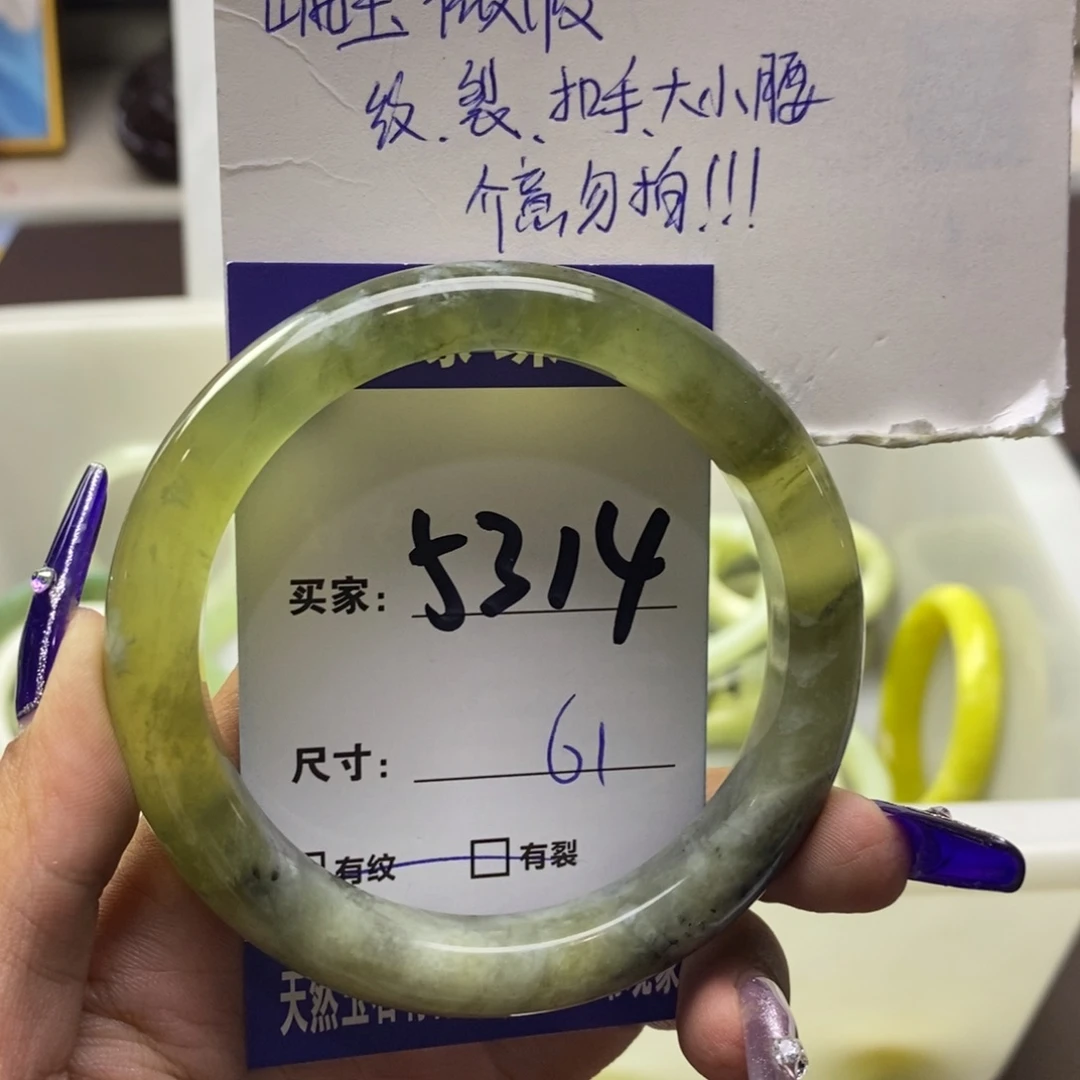 纹.裂、扣手、大小腰
介意勿拍!!!
买家: 5314
尺寸: 61
有纹 有裂
天然玉石